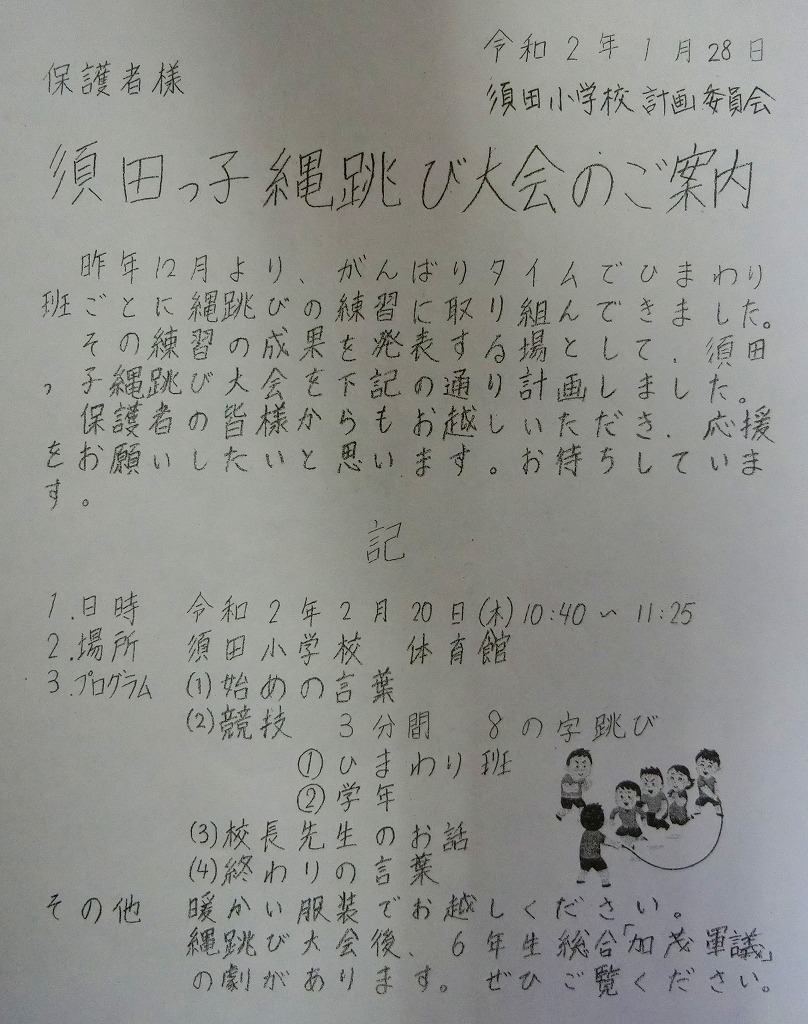 令和2年1月28日
保護者様
須田小学校計画委員会
須田っ子縄跳び大会のご案内
昨年12月より、がんばりタイムでひまわり
班ごとに縄跳びの練習に取り組んできました。
その練習の成果を発表する場として、須田
っ子縄跳び大会を下記の通り計画しました。
保護者の皆様からもお越しいただき、応援
をお願いしたいと思います。お待ちしていま
す。
記
1.日時 令和2年2月20日(木)10:40～11:25
2.場所 須田小学校 体育館
3.プログラム (1)始めの言葉
(2)競技 3分間 8の字跳び
①ひまわり班
②学年
(3)校長先生のお話
(4)終わりの言葉
その他 暖かい服装でお越しください。
縄跳び大会後、6年生総合「加茂軍議」
の劇があります。ぜひご覧ください。